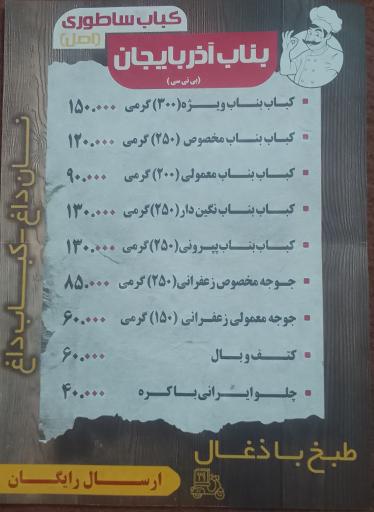 کباب ساطوری
(اصل)
بناب آذربایجان
(بی تی سی)
کباب بناب ویژه (۳۰۰) گرمی ۱۵۰.۰۰۰
کباب بناب مخصوص (۲۵۰) گرمی ۱۲۰.۰۰۰
کباب بناب معمولی (۲۰۰) گرمی ۹۰.۰۰۰
کباب بناب نگین دار (۲۵۰) گرمی ۱۳۰.۰۰۰
کباب بناب پپرونی (۲۵۰) گرمی ۱۳۰.۰۰۰
جوجه مخصوص زعفرانی (۲۵۰) گرمی ۸۵.۰۰۰
جوجه معمولی زعفرانی (۱۵۰) گرمی ۶۰.۰۰۰
کتف و بال ۶۰.۰۰۰
چلو ایرانی با کره ۴۰.۰۰۰
نان داغ - کباب داغ
طبخ با ذغال
ارسال رایگان